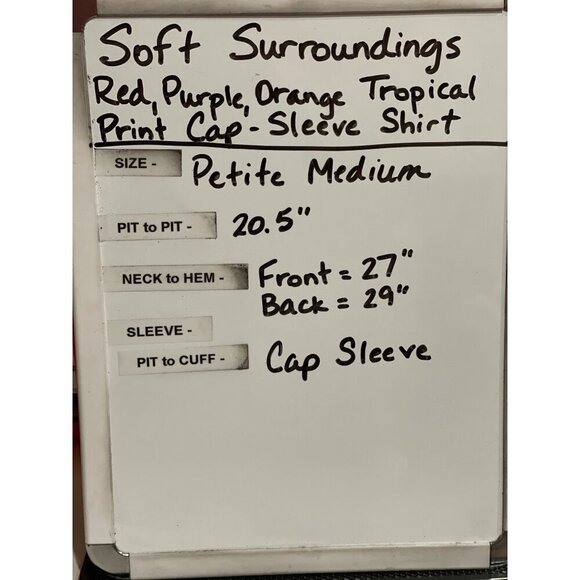 Soft Surroundings
Red, Purple, Orange Tropical
Print Cap-Sleeve Shirt
SIZE - Petite Medium
PIT to PIT - 20.5"
NECK to HEM - Front = 27"
Back = 29"
SLEEVE -
PIT to CUFF - Cap Sleeve